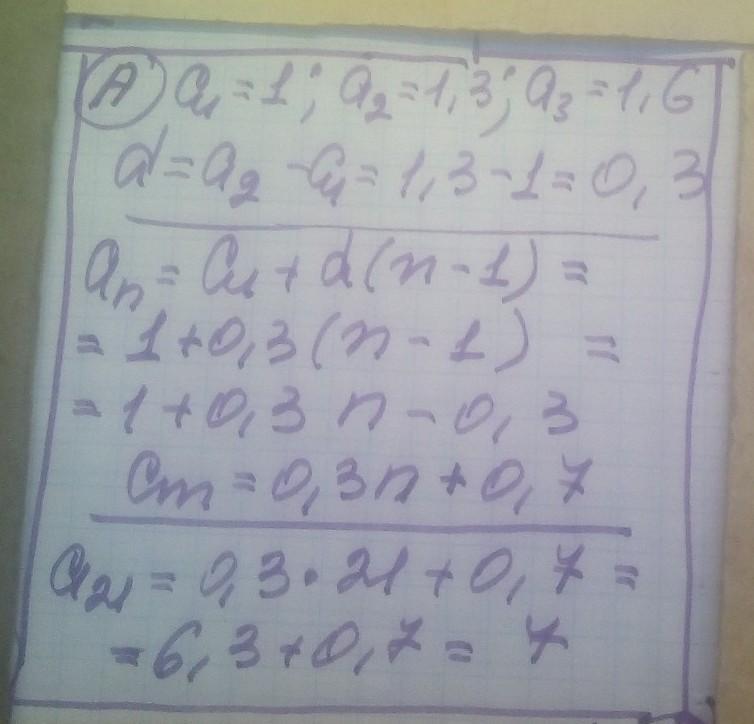 А) a₁ = 1; a₂ = 1,3; a₃ = 1,6
d = a₂ - a₁ = 1,3 - 1 = 0,3
aₙ = a₁ + d(n - 1) =
= 1 + 0,3(n - 1) =
= 1 + 0,3n - 0,3
aₙ = 0,3n + 0,7
a₂₁ = 0,3 · 21 + 0,7 =
= 6,3 + 0,7 = 7